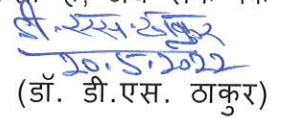 डी. एस. ठाकुर
20.5.2022
(डॉ. डी.एस. ठाकुर)